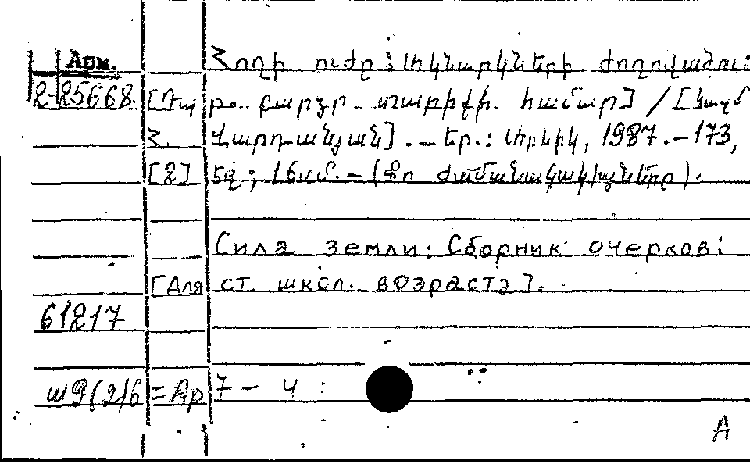 Арм. Հողի ուժը : Ակնարկների ժողովածու
2-25668 [Դպր. բարձր. տարիքի. համար] / [Կազմ.
Հ. Վարդանյան]. – Եր.: Արևիկ, 1987. – 173,
[2] եզ; 16սմ. – (Քո ժամանակակիցները).
Сила земли: Сборник очерков:
[Для ст. школ. возраста].
61217
ш9(2)6 = Ар 7 – 4 :
А